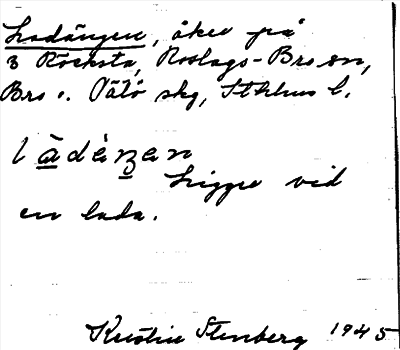 Ladängen, åker på
3 Röcksta, Roslags-Bro sn,
Bro o. Vätö skg, Sthlms l.
làdèŋen
Ligger vid
en lada.
Kerstin Stenberg 1945